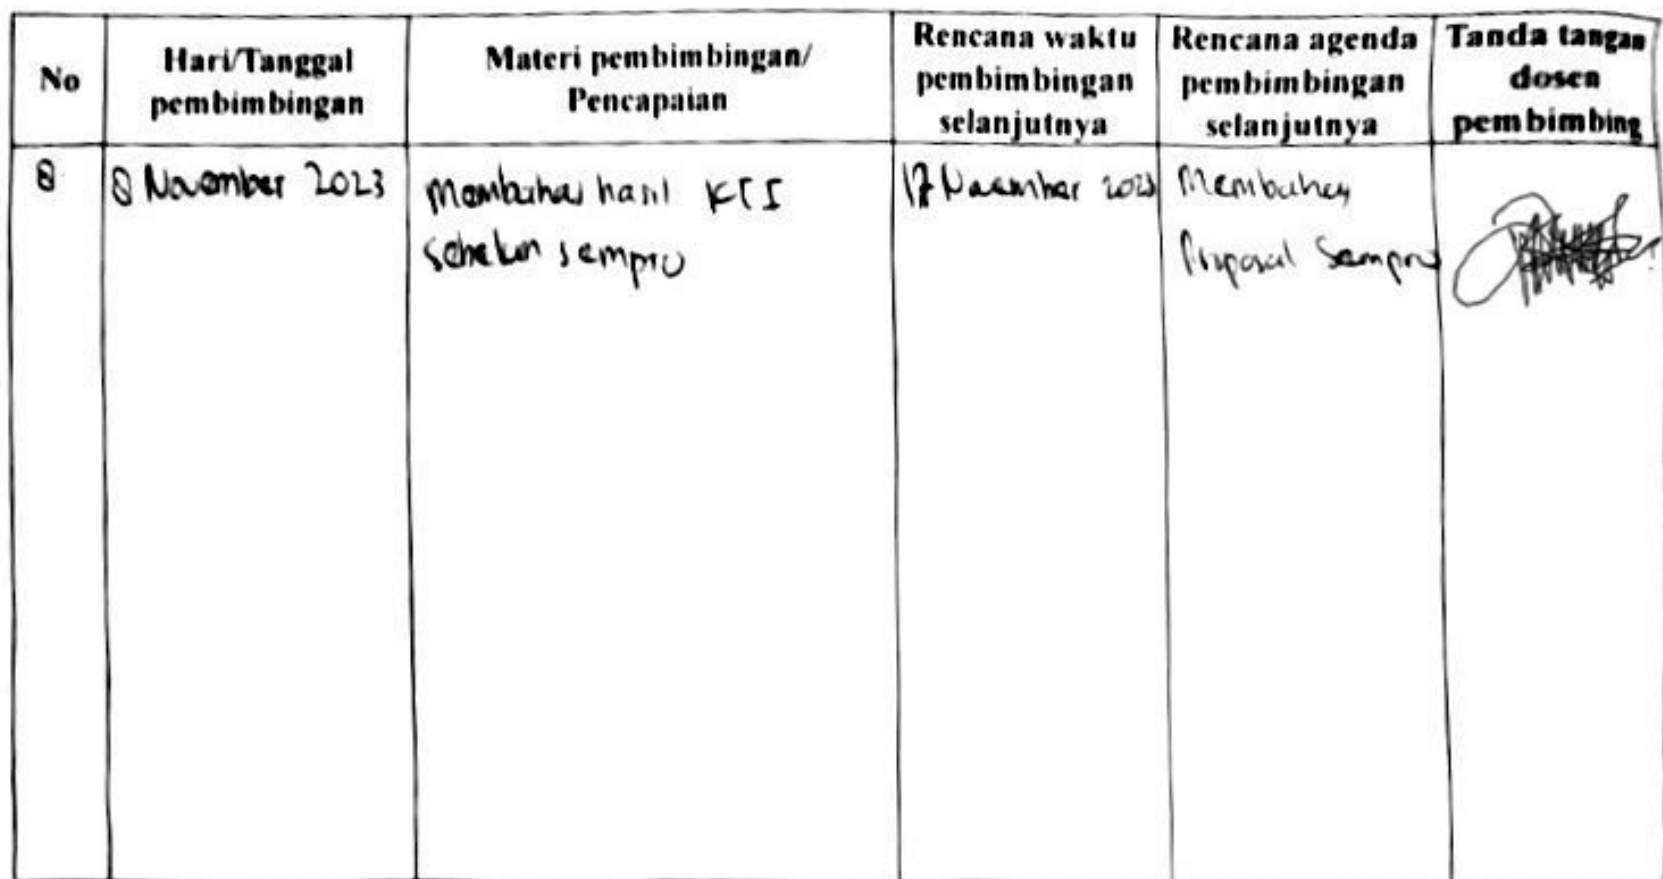 No
Hari/Tanggal
pembimbingan
Materi pembimbingan/
Pencapaian
Rencana waktu
pembimbingan
selanjutnya
Rencana agenda
pembimbingan
selanjutnya
Tanda tangan
dosen
pembimbing
8
8 November 2023
Membahas hasil KTI
sebelum sempro
17 November 2023
Membahas
Proposal Sempro